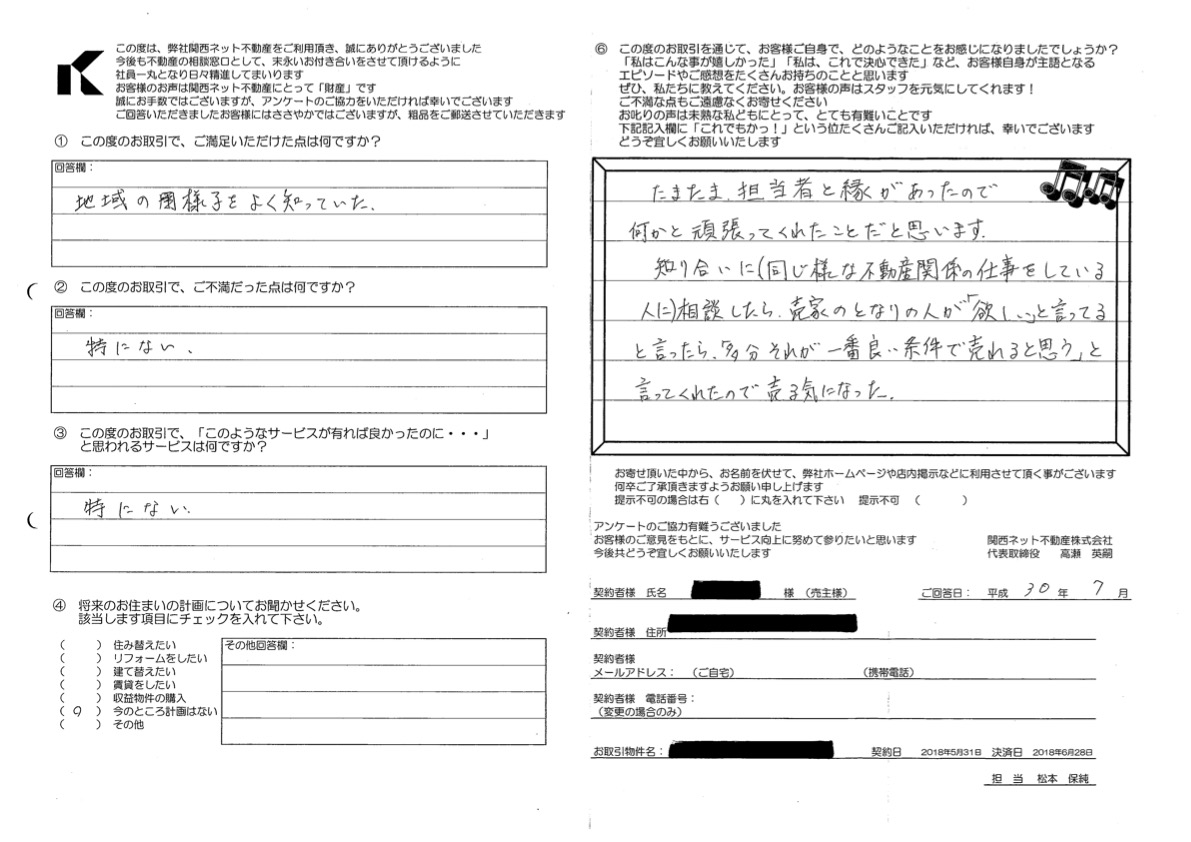 この度は、弊社関西ネット不動産をご利用頂き、誠にありがとうございました
今後も不動産の相談窓口として、末永いお付き合いをさせて頂けるように
社員一丸となり日々精進してまいります
お客様のお声は関西ネット不動産にとって「財産」です
誠にお手数ではございますが、アンケートのご協力をいただければ幸いでございます
ご回答いただきましたお客様にはささやかではございますが、粗品をご郵送させていただきます
① この度のお取引で、ご満足いただけた点は何ですか？
回答欄：
地域の様子をよく知っていた、
② この度のお取引で、ご不満だった点は何ですか？
回答欄：
特にない、
③ この度のお取引で、「このようなサービスが有れば良かったのに・・・」
と思われるサービスは何ですか？
回答欄：
特にない.
④ 将来のお住まいの計画についてお聞かせください。
該当します項目にチェックを入れて下さい。
( ) 住み替えたい
( ) リフォームをしたい
( ) 建て替えたい
( ) 賃貸をしたい
( ) 収益物件の購入
( ○ ) 今のところ計画はない
( ) その他
その他回答欄：
⑥ この度のお取引を通じて、お客様ご自身で、どのようなことをお感じになりましたでしょうか？
「私はこんな事が嬉しかった」「私は、これで決心できた」など、お客様自身が主語となる
エピソードやご感想をたくさんお持ちのことと思います
ぜひ、私たちに教えてください。お客様の声はスタッフを元気にしてくれます！
ご不満な点もご遠慮なくお寄せください
お叱りの声は未熟な私どもにとって、とても有難いことです
下記記入欄に「これでもかっ！」という位たくさんご記入いただければ、幸いでございます
どうぞ宜しくお願いいたします
たまたま、担当者と縁があったので
何かと頑張ってくれたことだと思います.
知り合いに(同じ様な不動産関係の仕事をしている
人に)相談したら、売家のとなりの人が「欲しい」と言ってる
と言ったら、「多分それが一番良い条件で売れると思う」と
言ってくれたので売る気になった.
お寄せ頂いた中から、お名前を伏せて、弊社ホームページや店内掲示などに利用させて頂く事がございます
何卒ご了承頂きますようお願い申し上げます
提示不可の場合は右（ ）に丸を入れて下さい 提示不可 （ ）
アンケートのご協力有難うございました
お客様のご意見をもとに、サービス向上に努めて参りたいと思います
今後共どうぞ宜しくお願いいたします
関西ネット不動産株式会社
代表取締役 高瀬 英嗣
契約者様 氏名 様 （売主様） ご回答日： 平成 30 年 7 月
契約者様 住所
契約者様
メールアドレス： （ご自宅） （携帯電話）
契約者様 電話番号：
（変更の場合のみ）
お取引物件名： 契約日 2018年5月31日 決済日 2018年6月28日
担 当 松本 保純